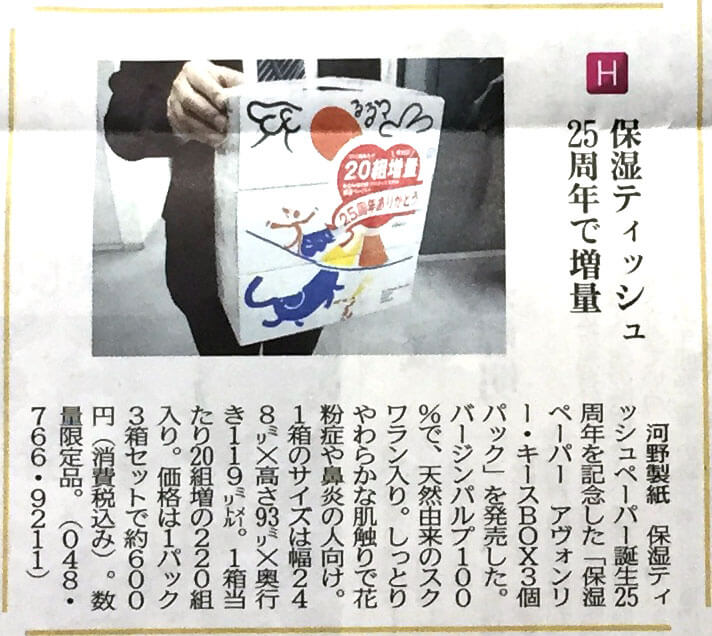 H
保湿ティッシュ
25周年で増量
20組増量
25周年ありがとう
河野製紙 保湿ティ
ッシュペーパー誕生25
周年を記念した「保湿
ペーパー アヴォンリ
ー・キースBOX3個
パック」を発売した。
バージンパルプ100
%で、天然由来のスク
ワラン入り。しっとり
やわらかな肌触りで花
粉症や鼻炎の人向け。
1箱のサイズは幅24
8㍉×高さ93㍉×奥行
き119㍉㍍。1箱当
たり20組増の220組
入り。価格は1パック
3箱セットで約600
円(消費税込み)。数
量限定品。(048・
766・9211)